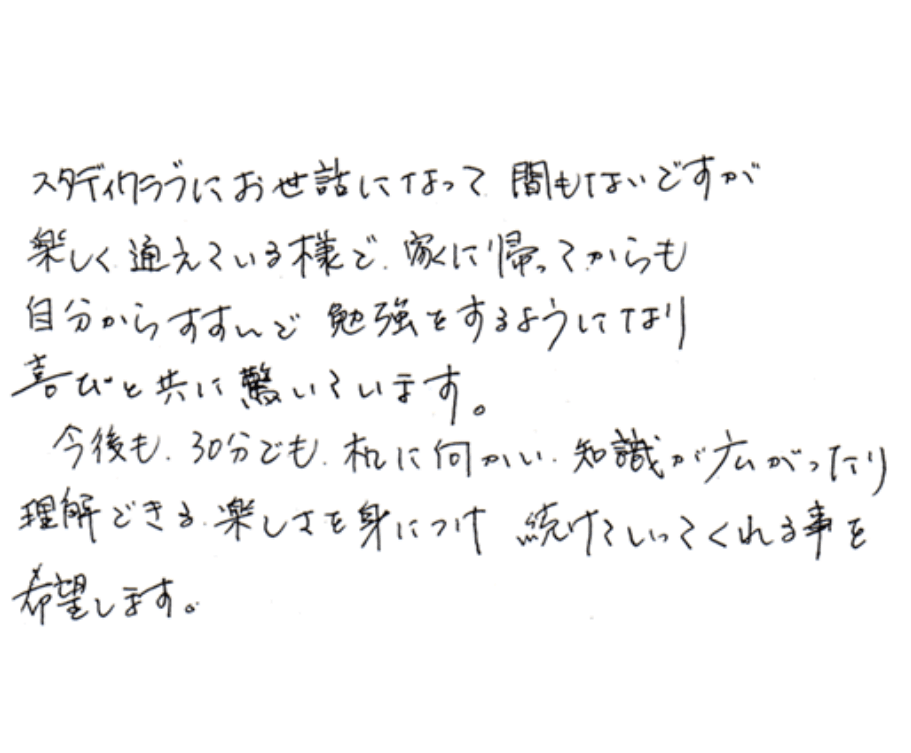 スタディクラブにお世話になって 間もないですが
楽しく通えている様で、家に帰ってからも
自分からすすんで 勉強をするようになり
喜びと共に驚いています。
今後も、30分でも、机に向かい、知識が広がったり
理解できる、楽しさを身につけ 続けていってくれる事を
希望します。